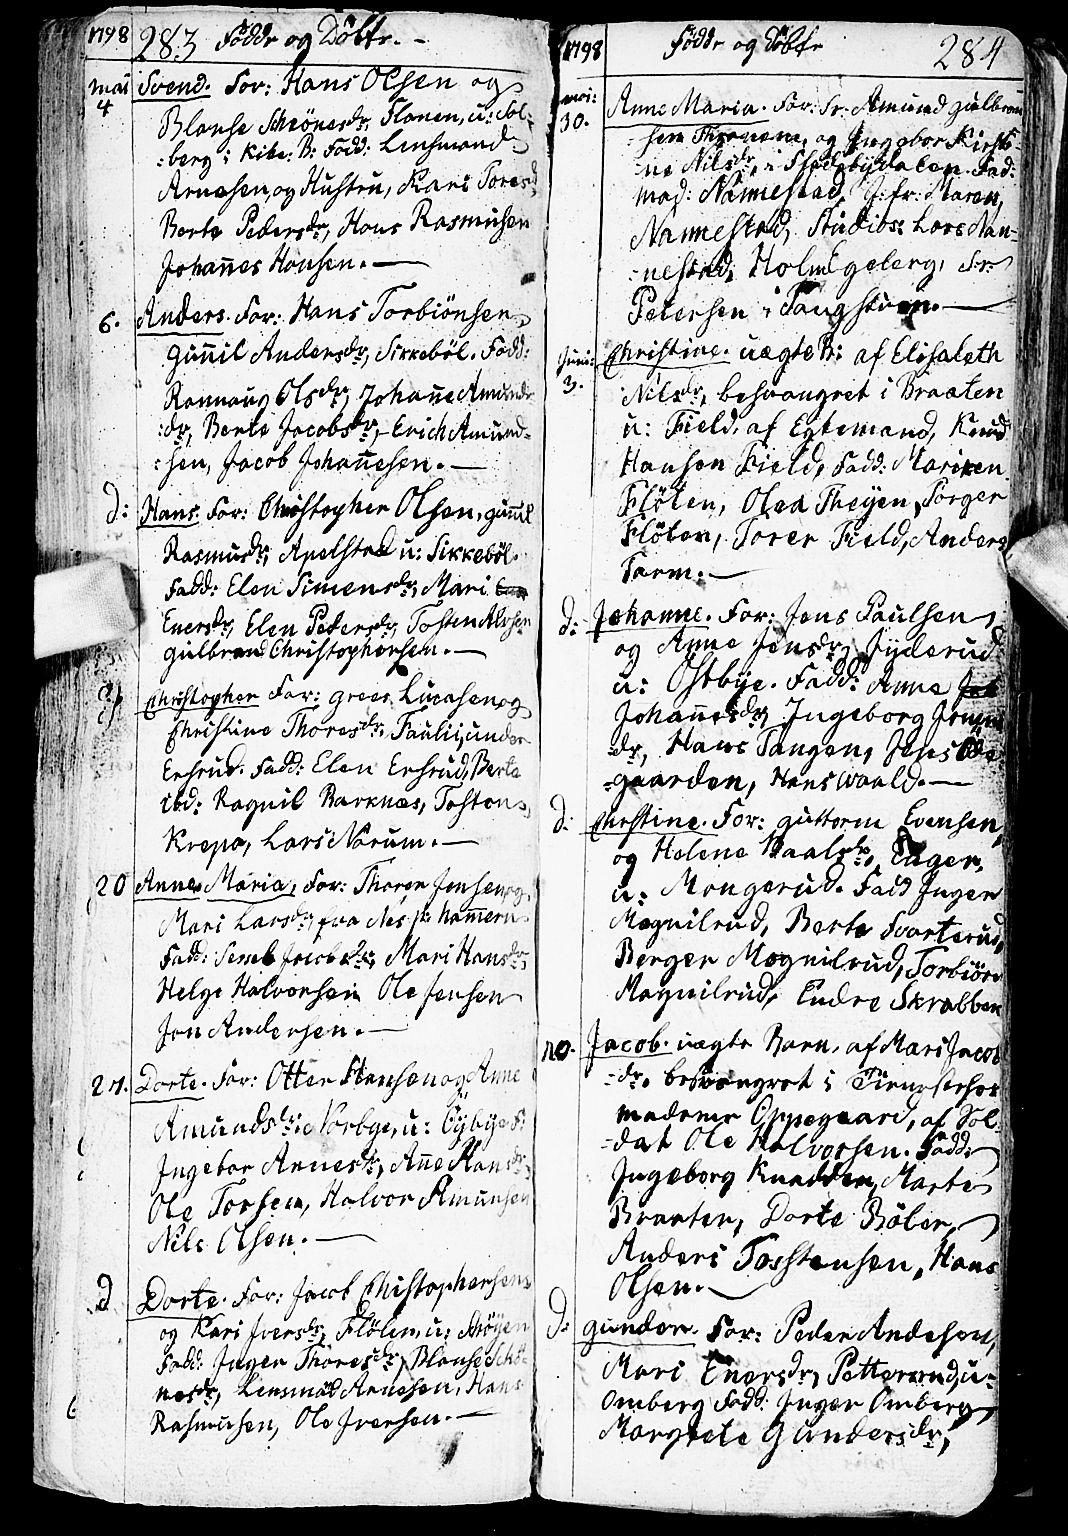 1798 283 Födde og Döbte.
Mai 4 Svend. For: Hans Olsen og
Blanse Schiönesdr, Flonen, u: Sol-
-berg i Kike: B: Fadd: Lensmand
Arnesen, og Hustru, Kari Toresd
Berte Pedersdr, Hans Rasmusen
Johañes Hansen.
6. Anders. For: Hans Torbiönsen
guñil Andersdr, Sikkeböl. Fadd:
Rannaug Olsdr, Johañe Amunds
:dr, Berte Jacobsdr, Erich Amund-
:sen, Jacob Johañesen.
d: Hans. For: Christopher Olsen, guñil
Rasmusdr, Apelstad u: Sikkeböl.
Fadd: Elen Simensdr, Mari
Enersdr, Elen Pedersdr, Tosten Alvsen
gulbrand Christophersen.
Christopher For: grees Lucasen og
Christine Thoresdr. Fauli, under
Erhrud. Fadd: Elen Erhrud, Berte
ibd: Ragnil Barknæs, Tosten
Krepa, Lars Narum.
20 Anne Maria, For: Thorer Jensen og
Mari Larsdr, fra Nes p: hammern
Fadd: Jacobsdr, Mari Hansdr,
Helge Halvorsen Ole Jensen
Jon Andersen.
27. Dorte. For: Otter Hansen og Anne
Amundsdr, Norbye, u: Öybye F:
Ingebor Arnesdr, Añe Hansdr,
Ole Torsen, Halvor Amunsen
Nils Olsen.
d Dorte. For: Jacob Christophersen
og Kari Iversdr, Flölen, u: Schöyen
Fadd: Inger Thoresdr, Blanse Schö-
nesdr, Linsmad Arnesen, Hans
Rasmusen, Ole Iversen.
1798 Födde og Döbte 284
mai: 30. Anne Maria. For: Sr. Amund gulbran
sen Thronene, og Ingebor Kirsti-
ne Nilsdr, i Fladebydalen. Fad:
mad: Nannestad, J:fr: Maren,
Nannestad, Studios: Lars Nan-
-nestad, Holm Egeberg, Sr
Petersen i Tangstuen.
Juni: 3. Christine. uægte B: af Elisabeth
Nilsdr, besvangret i Braaten
u: Field, af Egtemand, Knud
Hansen Field, Fadd: Mariken
Flöten, Olea Theyen, Torger
Flöten, Torer Field, Anders
Tarm.
d: Johanne. For: Jens Paulsen,
og Anne Jensdr, Jyderud
u: Östbye. Fadd: Anne
Johañesdr, Ingeborg
dr, Hans Tangen, Jens Öde
-gaarden, Hans Waald.
d: Christine. For: guttorm Evensen,
og Helene Paalsdr, Enger,
u: Mongerud. Fadd Inger
Mognilrud, Berte Svarterud,
Berger Mognilrud, Torbiörn
Mognilrud, Endre Skrabben
10. Jacob. uægte Barn, af Mari Jacob
-dr. besvangret i
Oppegaard, af Sol-
-dat Ole Halvorsen. Fadd:
Ingeborg Knadden, Marte
Braaten, Dorte Böler,
Anders Torstensen, Hans
Olsen.
d: gunder. For: Peder Andesen,
Mari Enersdr, Petterrud, u:
Omberg Fadd: Inger Omberg
Margrete Gundersdr,